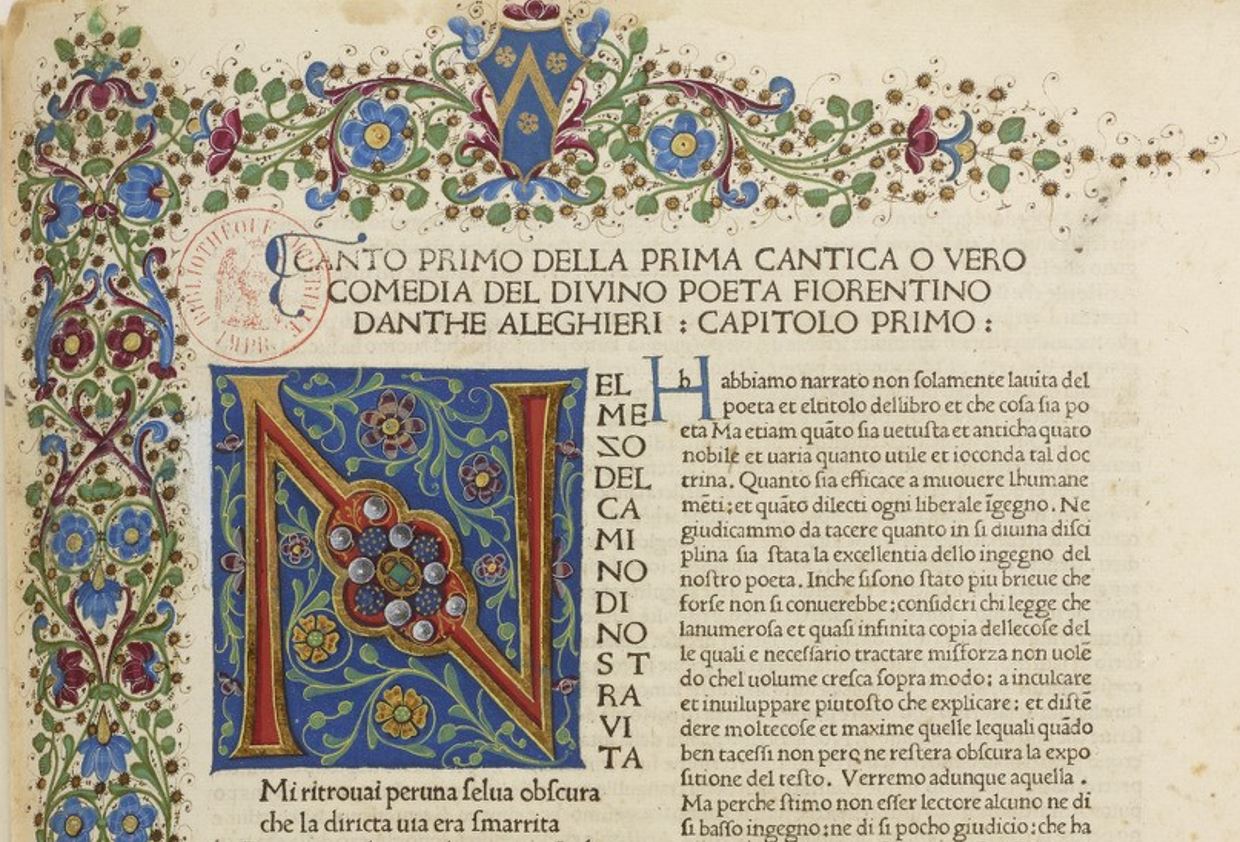 BIBLIOTHÈQUE IMPERIALE
IMPR.
CANTO PRIMO DELLA PRIMA CANTICA O VERO
COMEDIA DEL DIVINO POETA FIORENTINO
DANTHE ALEGHIERI : CAPITOLO PRIMO :
NEL
ME
ZO
DEL
CA
MI
NO
DI
NO
S T
RA
VI
TA
Mi ritrouai peruna ſelua obſcura
che la diricta uia era ſmarrita
Habbiamo narrato non ſolamente lauita del
poeta et eltitolo dellibro et che coſa ſia po
eta Ma etiam quāto ſia uetuſta et anticha quāto
nobile et uaria quanto utile et ioconda tal doc
trina. Quanto ſia efficace a muouere lhumane
mēti; et quāto dilecti ogni liberale īgegno. Ne
giudicammo da tacere quanto in ſi diuina diſci
plina ſia ſtata la excellentia dello ingegno del
noſtro poeta. Inche ſiſono ſtato piu brieue che
forſe non ſi conuerebbe; conſideri chi legge che
lanumeroſa et quaſi infinita copia dellecoſe del
le quali e neceſſario tractare miſforza non uolē
do chel uolume creſca ſopra modo; a inculcare
et inuiluppare piutoſto che explicare; et diſtē
dere moltecoſe et maxime quelle lequali quādo
ben taceſſi non però ne reſtera obſcura la expo
ſitione del teſto. Verremo adunque aquella .
Ma perche ſtimo non eſſer lectore alcuno ne di
ſi baſſo ingegno; ne di ſi pocho giudicio; che ha